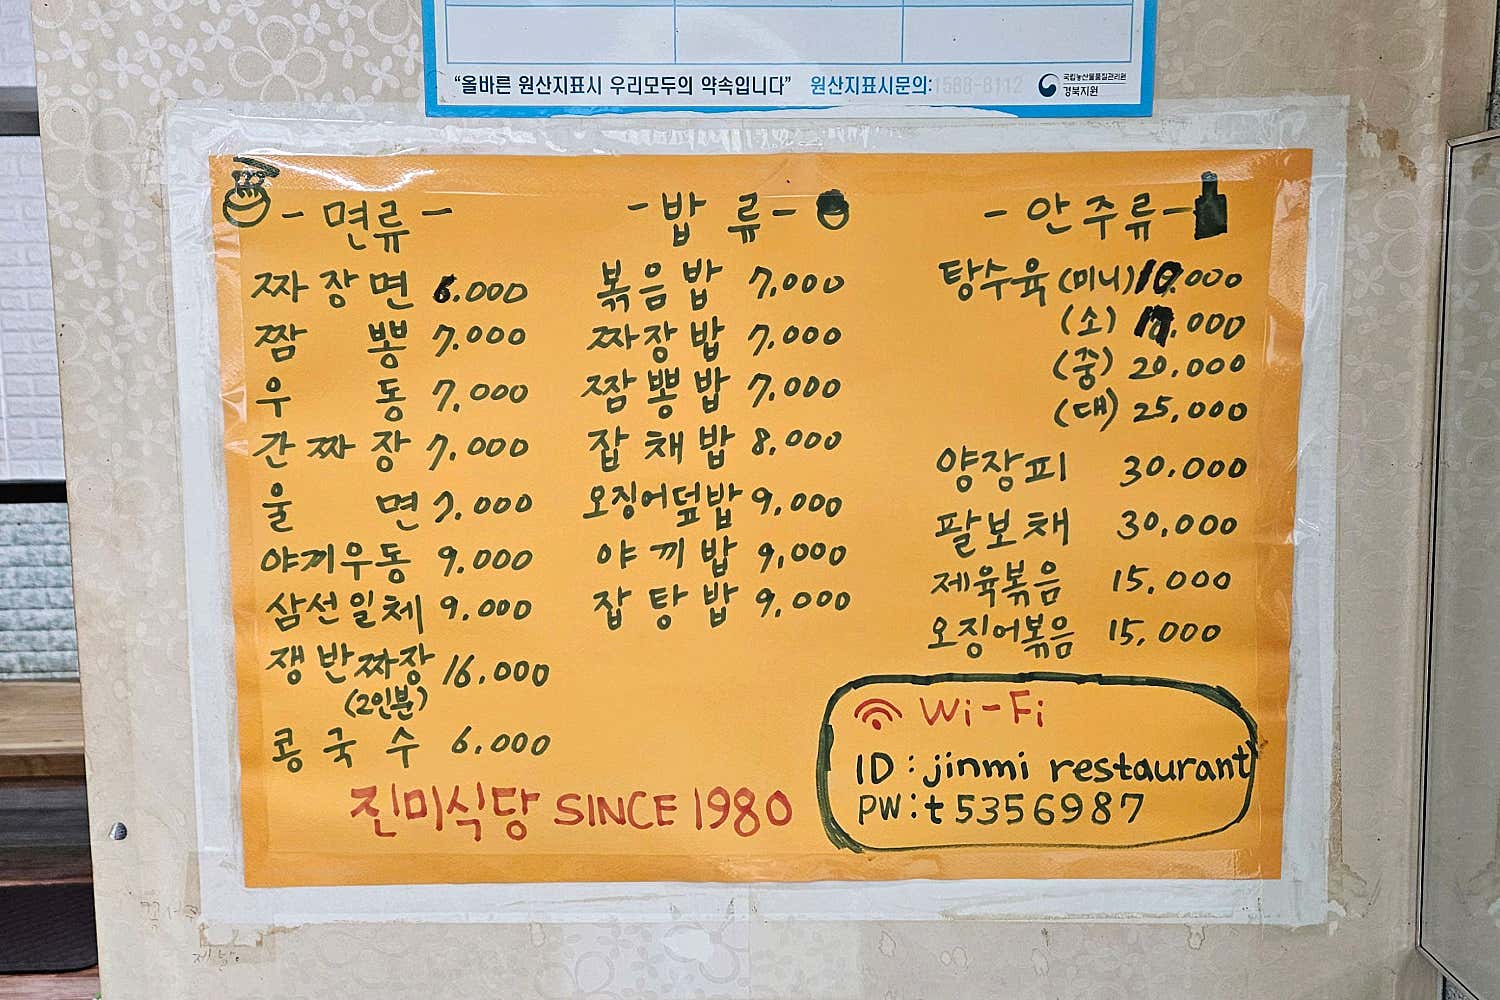 "올바른 원산지표시 우리모두의 약속입니다" 원산지표시문의:1588-8112 국립농산물품질관리원
경북지원
- 면류 -
짜장면 6.000
짬뽕 7.000
우동 7.000
간짜장 7.000
울면 7.000
야끼우동 9.000
삼선일체 9.000
쟁반짜장 16.000
(2인분)
콩국수 6.000
- 밥류 -
볶음밥 7,000
짜장밥 7,000
짬뽕밥 7,000
잡채밥 8,000
오징어덮밥 9,000
야끼밥 9,000
잡탕밥 9,000
- 안주류 -
탕수육 (미니) 10.000
(소) .000
(중) 20,000
(대) 25,000
양장피 30.000
팔보채 30.000
제육볶음 15,000
오징어볶음 15,000
Wi-Fi
ID : jinmi restaurant
PW : t5356987
진미식당 SINCE 1980